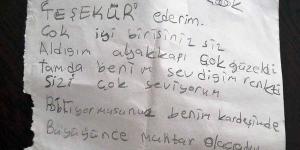 çok
TEŞEKÜR ederim.
Çok iyi birisiniz siz
Aldığım ayakkapı çok güzeldi
tamda benim sevdiğim renkti
sizi çok seviyorum
Biliyormusunuz benim kardeşimde
Büyüğünce muhtar olacak